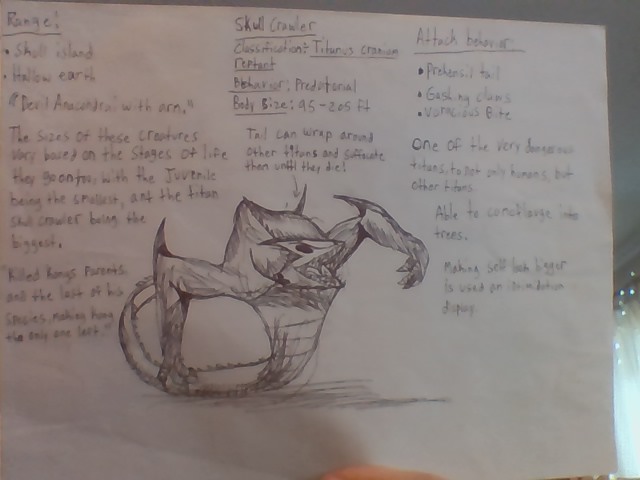 Range:
• Skull island
• Hallow earth
"Devil Anaconda with arm."
The sizes of these creatures
vary based on the stages of life
they go on too, with the Juvenile
being the smallest, ant the titan
skull crawler being the
biggest.
"Killed Kongs Parents
and the last of his
species, making kong
the only one left"
Skull Crawler
Classification: Titunus cranium
reptant
Behavior: Predatorial
Body Size: 95-205 ft
Tail can wrap around
other titans and suffocate
them until they die!
Attack behavior:
• Prehensil tail
• Gashing claws
• Voracious Bite
One of the very dangerous
titans, to not only humans, but
other titans.
Able to camoflauge into
trees.
Making self look bigger
is used an inimidation
display.